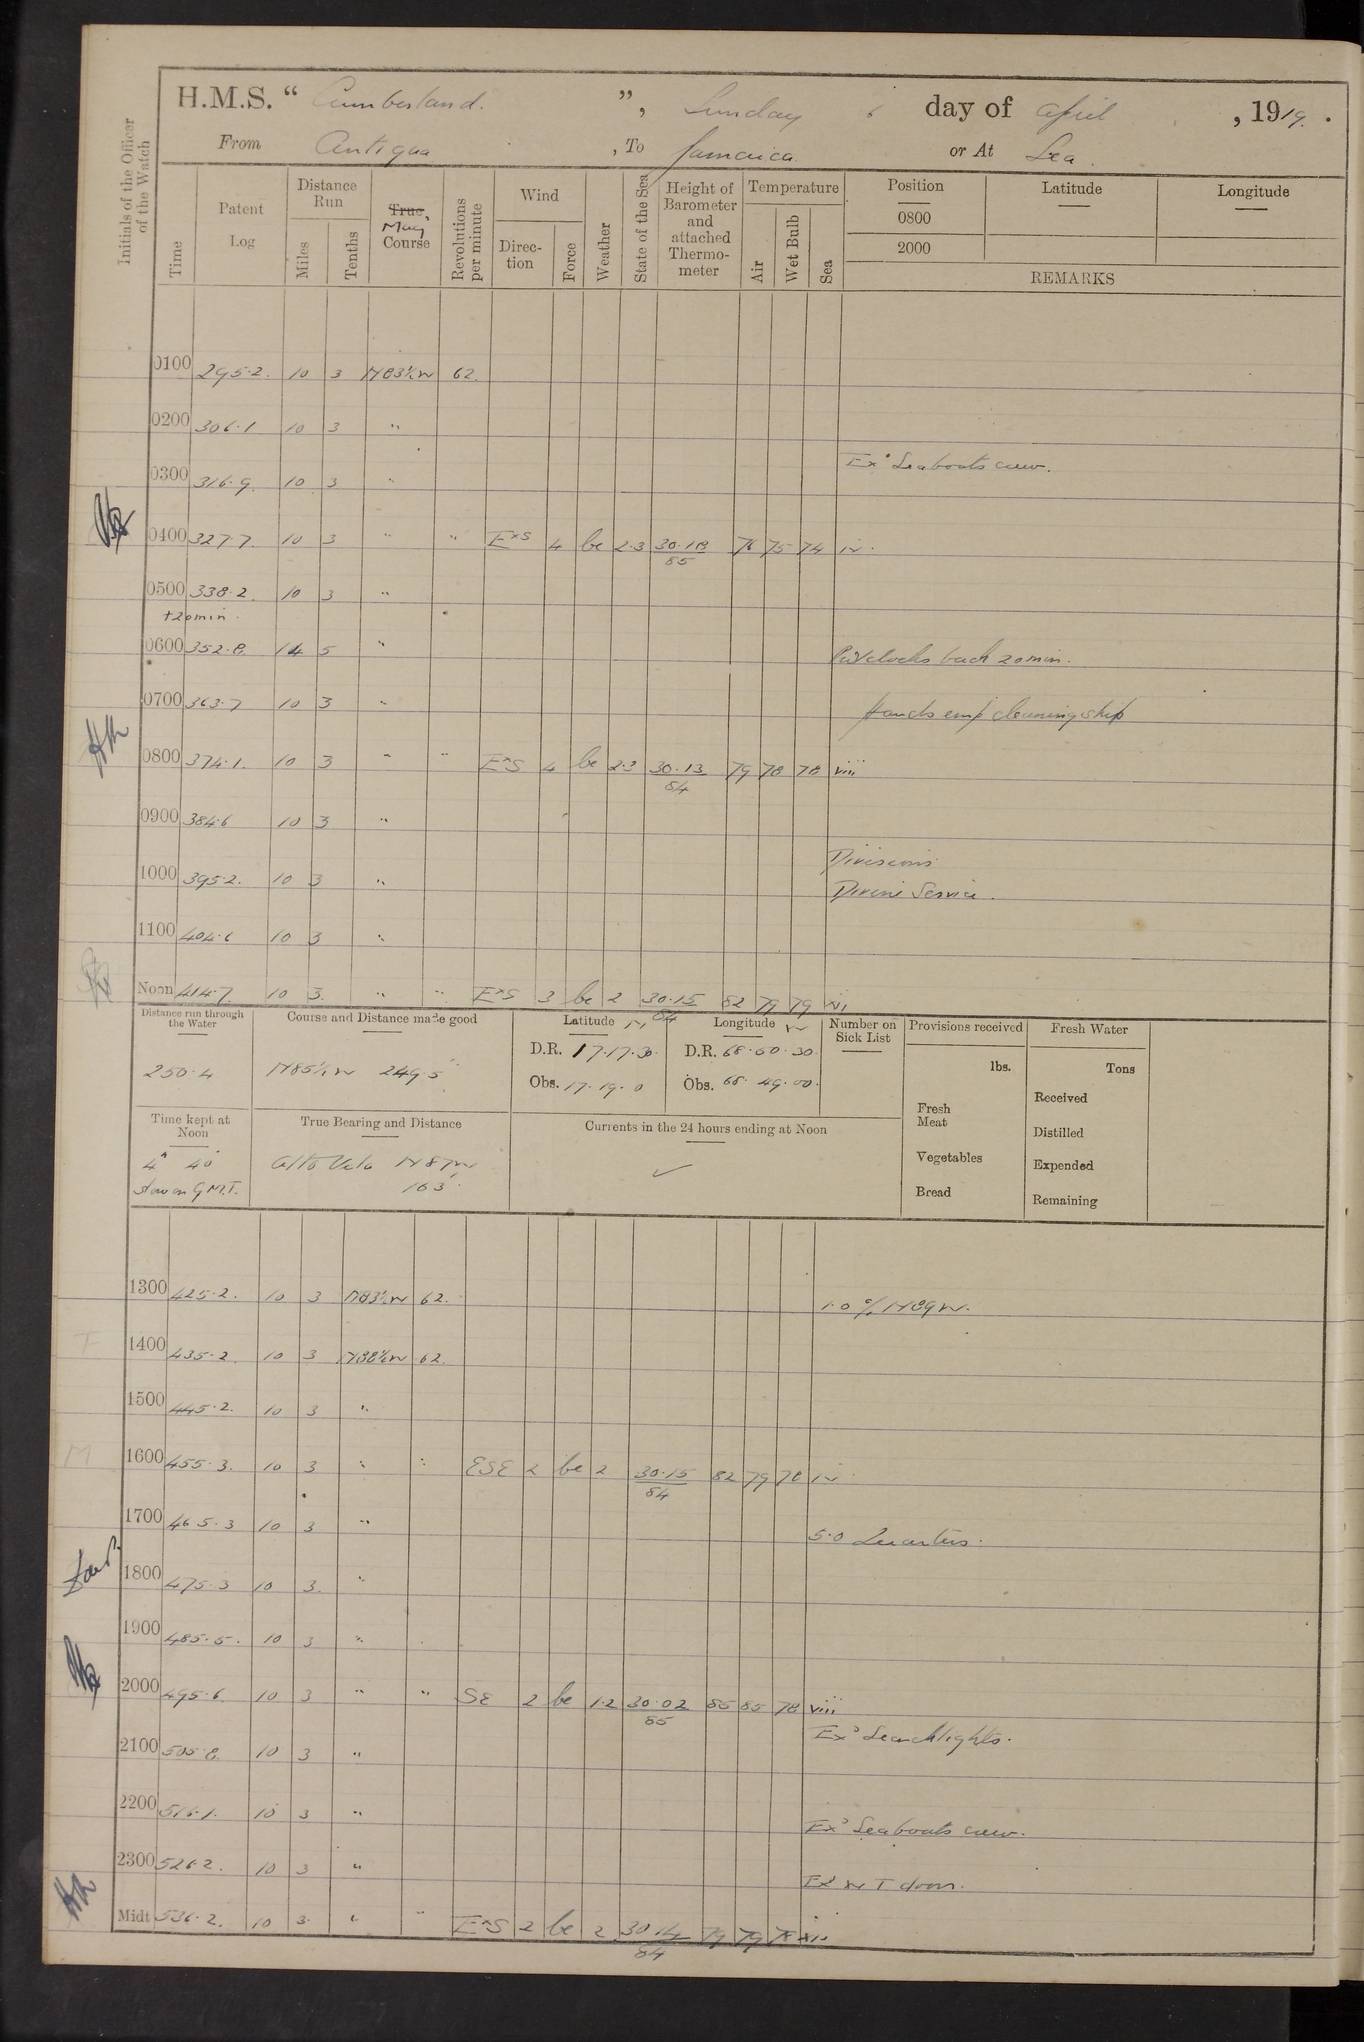 H.M.S. “ Cumberland. ”, Sunday 6 day of April , 1919.
From Antigua , To Jamaica or At Sea.
Initials of the Officer of the Watch
Time Patent Log Distance Run Miles Tenths True, Mag Course Revolutions per minute Wind Direction Force Weather State of the Sea Height of Barometer and attached Thermometer Temperature Air Wet Bulb Sea Position Latitude Longitude
0800
2000
REMARKS
0100 295.2 10 3 N83½W 62.
0200 306.1 10 3 "
Exd Seaboats crew.
0300 316.9 10 3 "
0400 327.7 10 3 " " ExS 4 bc 2.3 30.18 76 75 74 iv.
85
0500 338.2 10 3 "
+20min.
0600 352.8 14 5 "
Put clocks back 20 min.
0700 363.7 10 3 "
Hands emp cleaning ship
0800 374.1 10 3 " " ExS 4 bc 2.3 30.13 79 78 78 viii
84
0900 384.6 10 3 "
Divisions
1000 395.2 10 3 "
Divine Service.
1100 404.6 10 3 "
Noon 414.7 10 3 " " ExS 3 bc 2 30.15 82 79 79 xii
84
Distance run through the Water Course and Distance made good Latitude N Longitude W Number on Sick List Provisions received Fresh Water
250.4 N85½W 249.5
D.R. 17.17.30. D.R. 68.50.30.
Obs. 17.19.0 Obs. 68.49.00.
lbs. Tons
Fresh Meat
Vegetables
Bread
Received
Distilled
Expended
Remaining
Time kept at Noon True Bearing and Distance Currents in the 24 hours ending at Noon
4h 40 Alto Vela N87W
slow on G.M.T. 163'.
1300 425.2. 10 3 N83½W 62.
1.0 a/c N89W.
1400 435.2 10 3 N88½W 62
1500 445.2. 10 3 "
1600 455.3. 10 3 " " ESE 2 bc 2 30.15 82 79 78 iv
84
1700 465.3 10 3 "
5.0 Quarters.
1800 475.3 10 3. "
1900 485.5. 10 3 "
2000 495.6 10 3 " " SE 2 bc 1.2 30.02 85 85 78 viii
85
Exd Searchlights.
2100 505.8 10 3 "
2200 516.1. 10 3 "
Exd Seaboats crew.
2300 526.2. 10 3 "
Exd W T doors.
Midt 536.2. 10 3. " " ExS 2 bc 2 30.14 79 79 78 xii
84